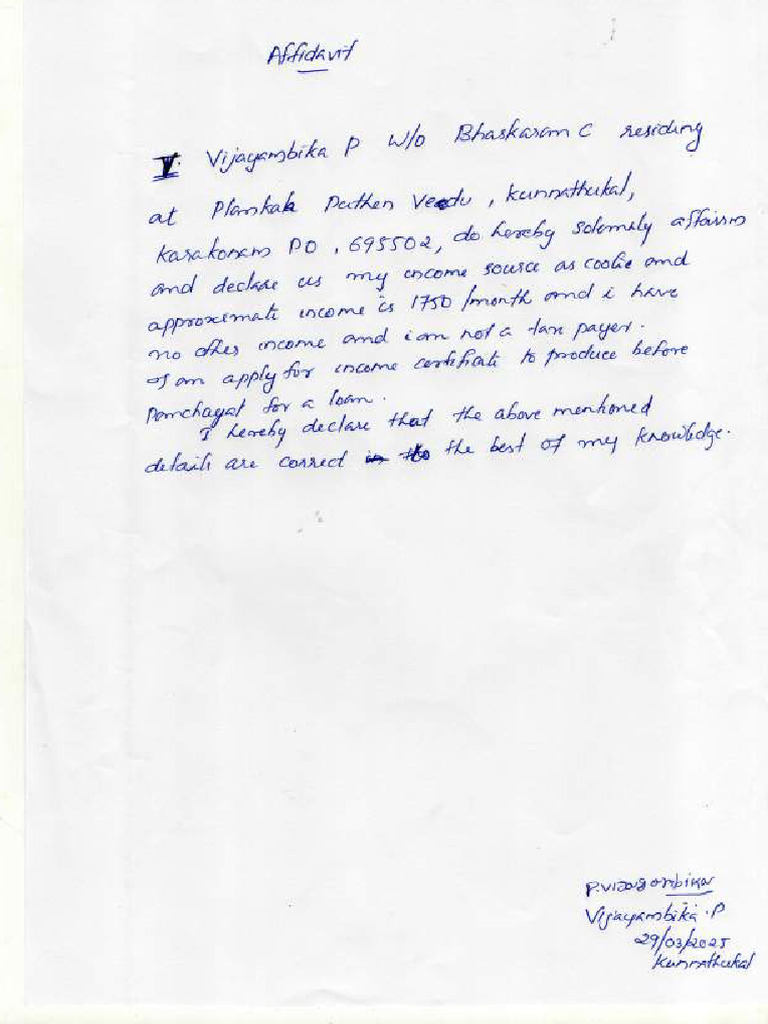 Affidavit
I Vijayambika P W/o Bhaskaran C residing
at Plankala Puthen Veedu, Kunnathukal,
Karakonam PO, 695502, do hereby solemnly affairm
and declare us my income source as coolie and
approximate income is 1750/month and i have
no other income and i am not a tax payer.
I am apply for income certificate to produce before
Panchayat for a loan.
I hereby declare that the above mentioned
details are correct to the best of my knowledge.
P.Vijayambika
Vijayambika.P
29/03/2025
Kunnathukal